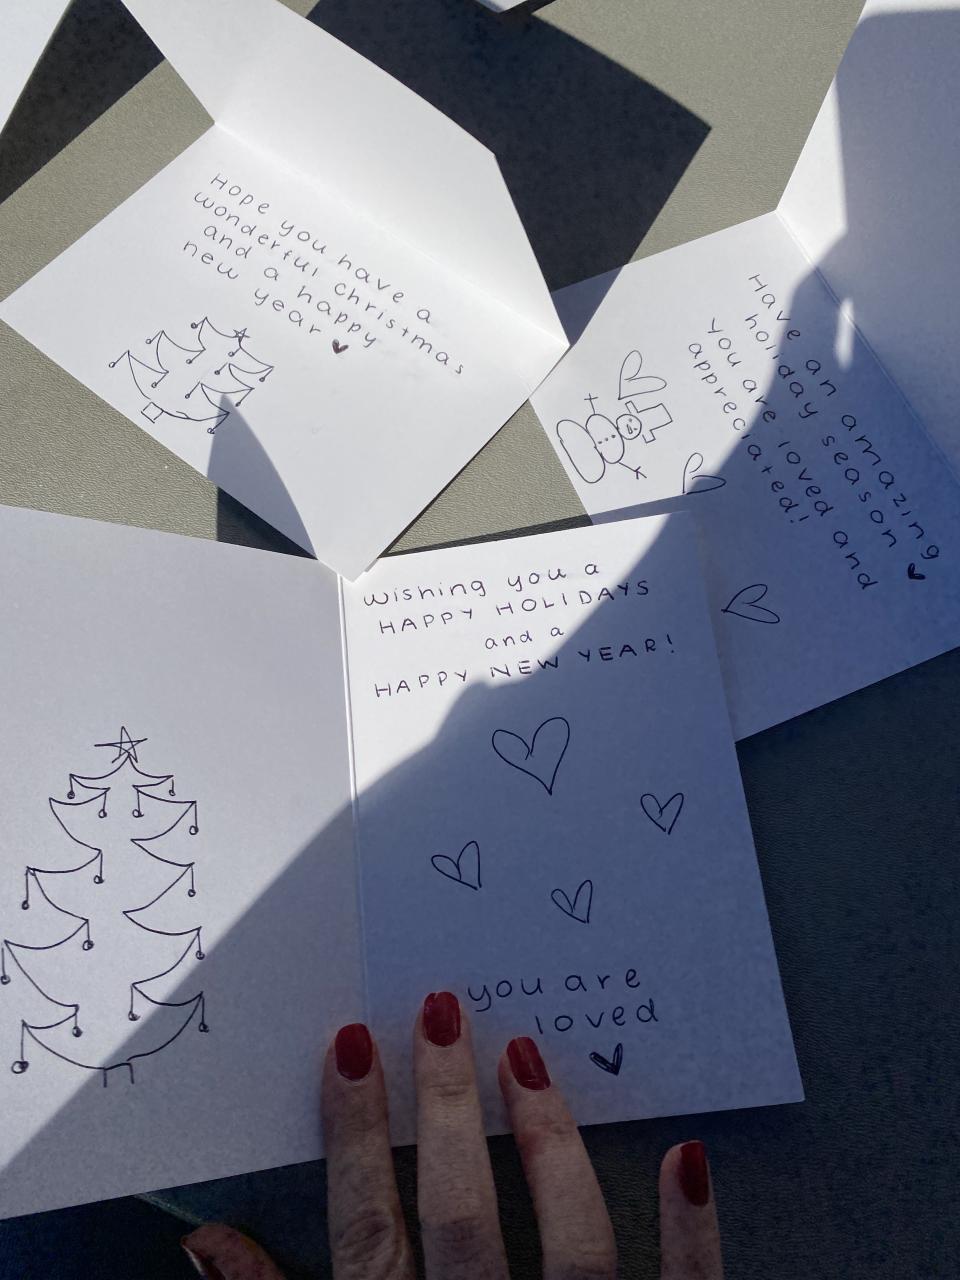 Hope you have a
wonderful christmas
and a happy
new year
Have an amazing
holiday season
you are loved and
appreciated!
wishing you a
HAPPY HOLIDAYS
and a
HAPPY NEW YEAR!
you are
loved